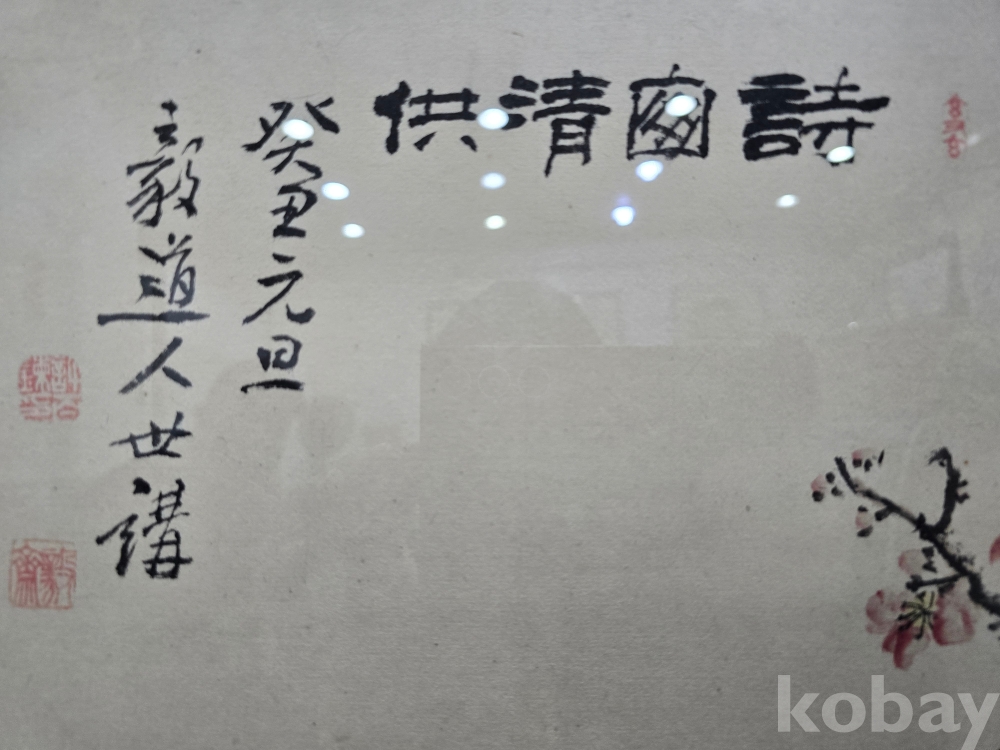 詩窗清供
癸丑元旦
毅道人世講
kobay